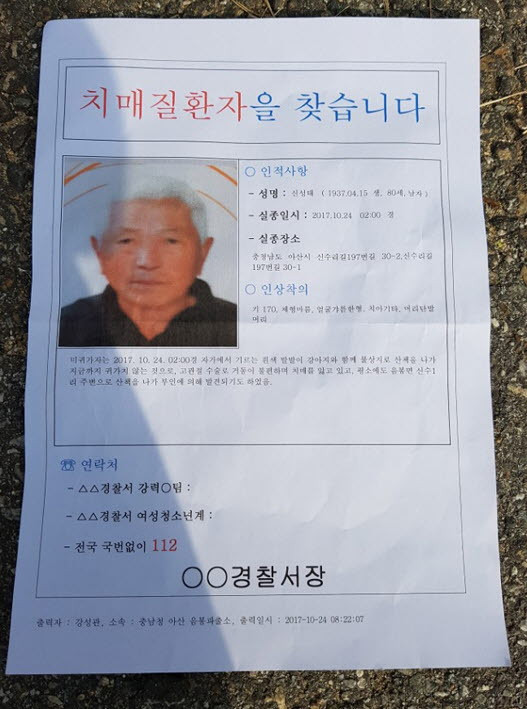 치매질환자을 찾습니다
○ 인적사항
- 성명 : 신상태 ( 1937.04.15 생, 80세, 남자 )
- 실종일시 : 2017.10.24 02:00 경
- 실종장소
충청남도 아산시 신수리길197번길 30-2,신수리길
197번길 30-1
○ 인상착의
키 170, 체형마름, 얼굴갸름한형, 치아기타, 머리반발
머리
미귀가자는 2017. 10. 24. 02:00경 자가에서 기르는 흰색 발발이 강아지와 함께 불상지로 산책을 나가
지금까지 귀가치 않는 것으로, 고관절 수술로 거동이 불편하며 치매를 앓고 있고, 평소에도 음봉면 신수1
리 주변으로 산책을 나가 부인에 의해 발견되기도 하였음.
☏ 연락처
- △△경찰서 강력○팀 :
- △△경찰서 여성청소년계 :
- 전국 국번없이 112
○○경찰서장
출력자 : 강성관, 소속 : 충남청 아산 음봉파출소, 출력일시 : 2017-10-24 08:22:07